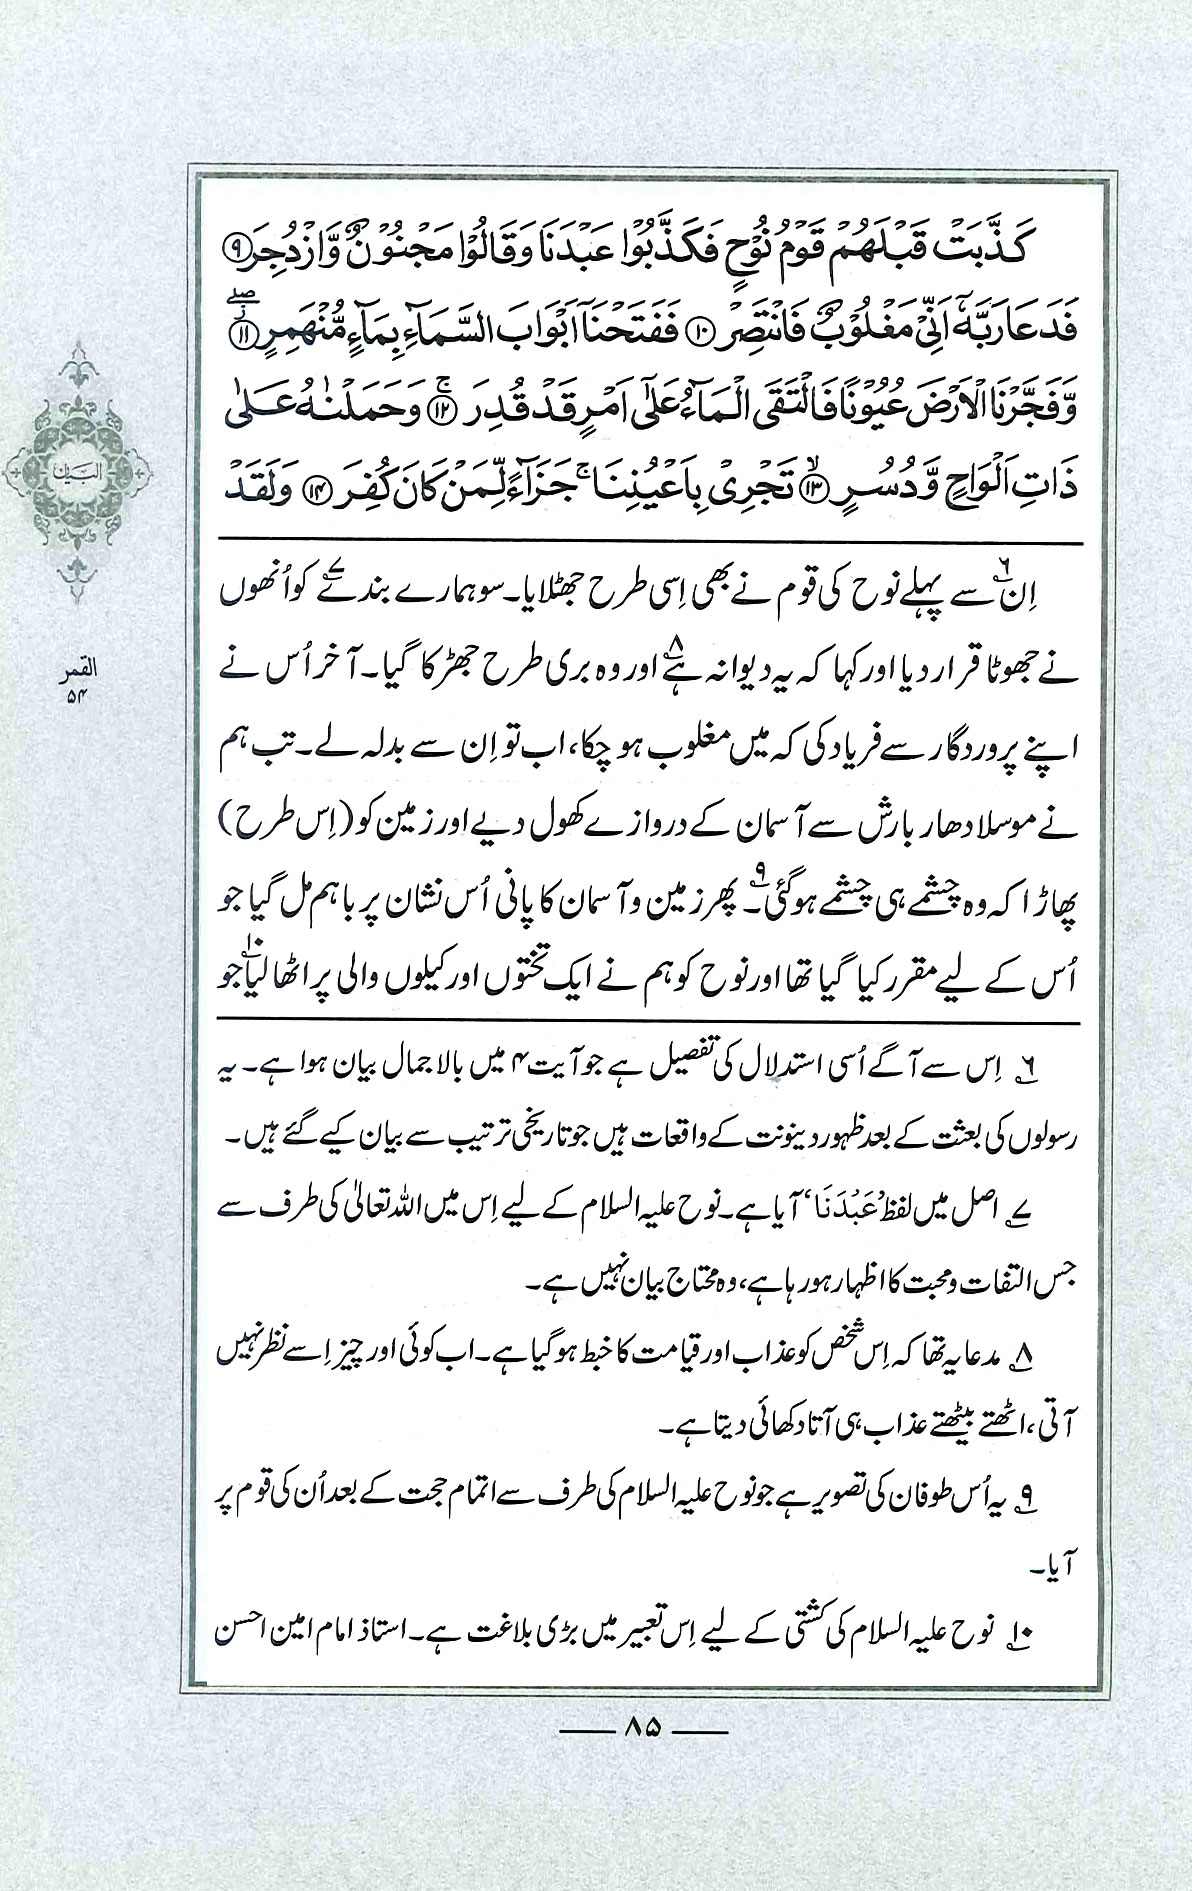 كَذَّبَتْ قَبْلَهُمْ قَوْمُ نُوْحٍ فَكَذَّبُوْا عَبْدَنَا وَقَالُوْا مَجْنُوْنٌ وَّازْدُجِرَ ﴿۹﴾
فَدَعَا رَبَّهٗٓ اَنِّیْ مَغْلُوْبٌ فَانْتَصِرْ ﴿۱۰﴾ فَفَتَحْنَآ اَبْوَابَ السَّمَآءِ بِمَآءٍ مُّنْهَمِرٍ ﴿۱۱﴾ۖ
وَّفَجَّرْنَا الْاَرْضَ عُيُوْنًا فَالْتَقَى الْمَآءُ عَلٰٓى اَمْرٍ قَدْ قُدِرَ ﴿۱۲﴾ۚ وَحَمَلْنٰهُ عَلٰى
ذَاتِ اَلْوَاحٍ وَّدُسُرٍ ﴿۱۳﴾ۙ تَجْرِیْ بِاَعْيُنِنَا ۚ جَزَآءً لِّمَنْ كَانَ كُفِرَ ﴿۱۴﴾ وَلَقَدْ
اِن۶ سے پہلے نوح کی قوم نے بھی اِسی طرح جھٹلایا۔ سو ہمارے بندے۷ کو اُنھوں
نے جھوٹا قرار دیا اور کہا کہ یہ دیوانہ ہے۸ اور وہ بری طرح جھڑکا گیا۔ آخر اُس نے
اپنے پروردگار سے فریاد کی کہ میں مغلوب ہو چکا، اب تو اِن سے بدلہ لے۔ تب ہم
نے موسلا دھار بارش سے آسمان کے دروازے کھول دیے اور زمین کو (اِس طرح)
پھاڑا کہ وہ چشمے ہی چشمے ہو گئی۔۹ پھر زمین و آسمان کا پانی اُس نشان پر باہم مل گیا جو
اُس کے لیے مقرر کیا گیا تھا اور نوح کو ہم نے ایک تختوں اور کیلوں والی پر اٹھا لیا۱۰ جو
۶ اِس سے آگے اُسی استدلال کی تفصیل ہے جو آیت ۴ میں بالاجمال بیان ہوا ہے۔ یہ
رسولوں کی بعثت کے بعد ظہور دینونت کے واقعات ہیں جو تاریخی ترتیب سے بیان کیے گئے ہیں۔
۷ اصل میں لفظ 'عَبْدَنَا' آیا ہے۔ نوح علیہ السلام کے لیے اِس میں اللہ تعالیٰ کی طرف سے
جس التفات و محبت کا اظہار ہو رہا ہے، وہ محتاج بیان نہیں ہے۔
۸ مدعا یہ تھا کہ اِس شخص کو عذاب اور قیامت کا خبط ہو گیا ہے۔ اب کوئی اور چیز اِسے نظر نہیں
آتی، اٹھتے بیٹھتے عذاب ہی آتا دکھائی دیتا ہے۔
۹ یہ اُس طوفان کی تصویر ہے جو نوح علیہ السلام کی طرف سے اتمام حجت کے بعد اُن کی قوم پر
آیا۔
۱۰ نوح علیہ السلام کی کشتی کے لیے اِس تعبیر میں بڑی بلاغت ہے۔ استاذ امام امین احسن
البیان
القمر
۵۴
۸۵